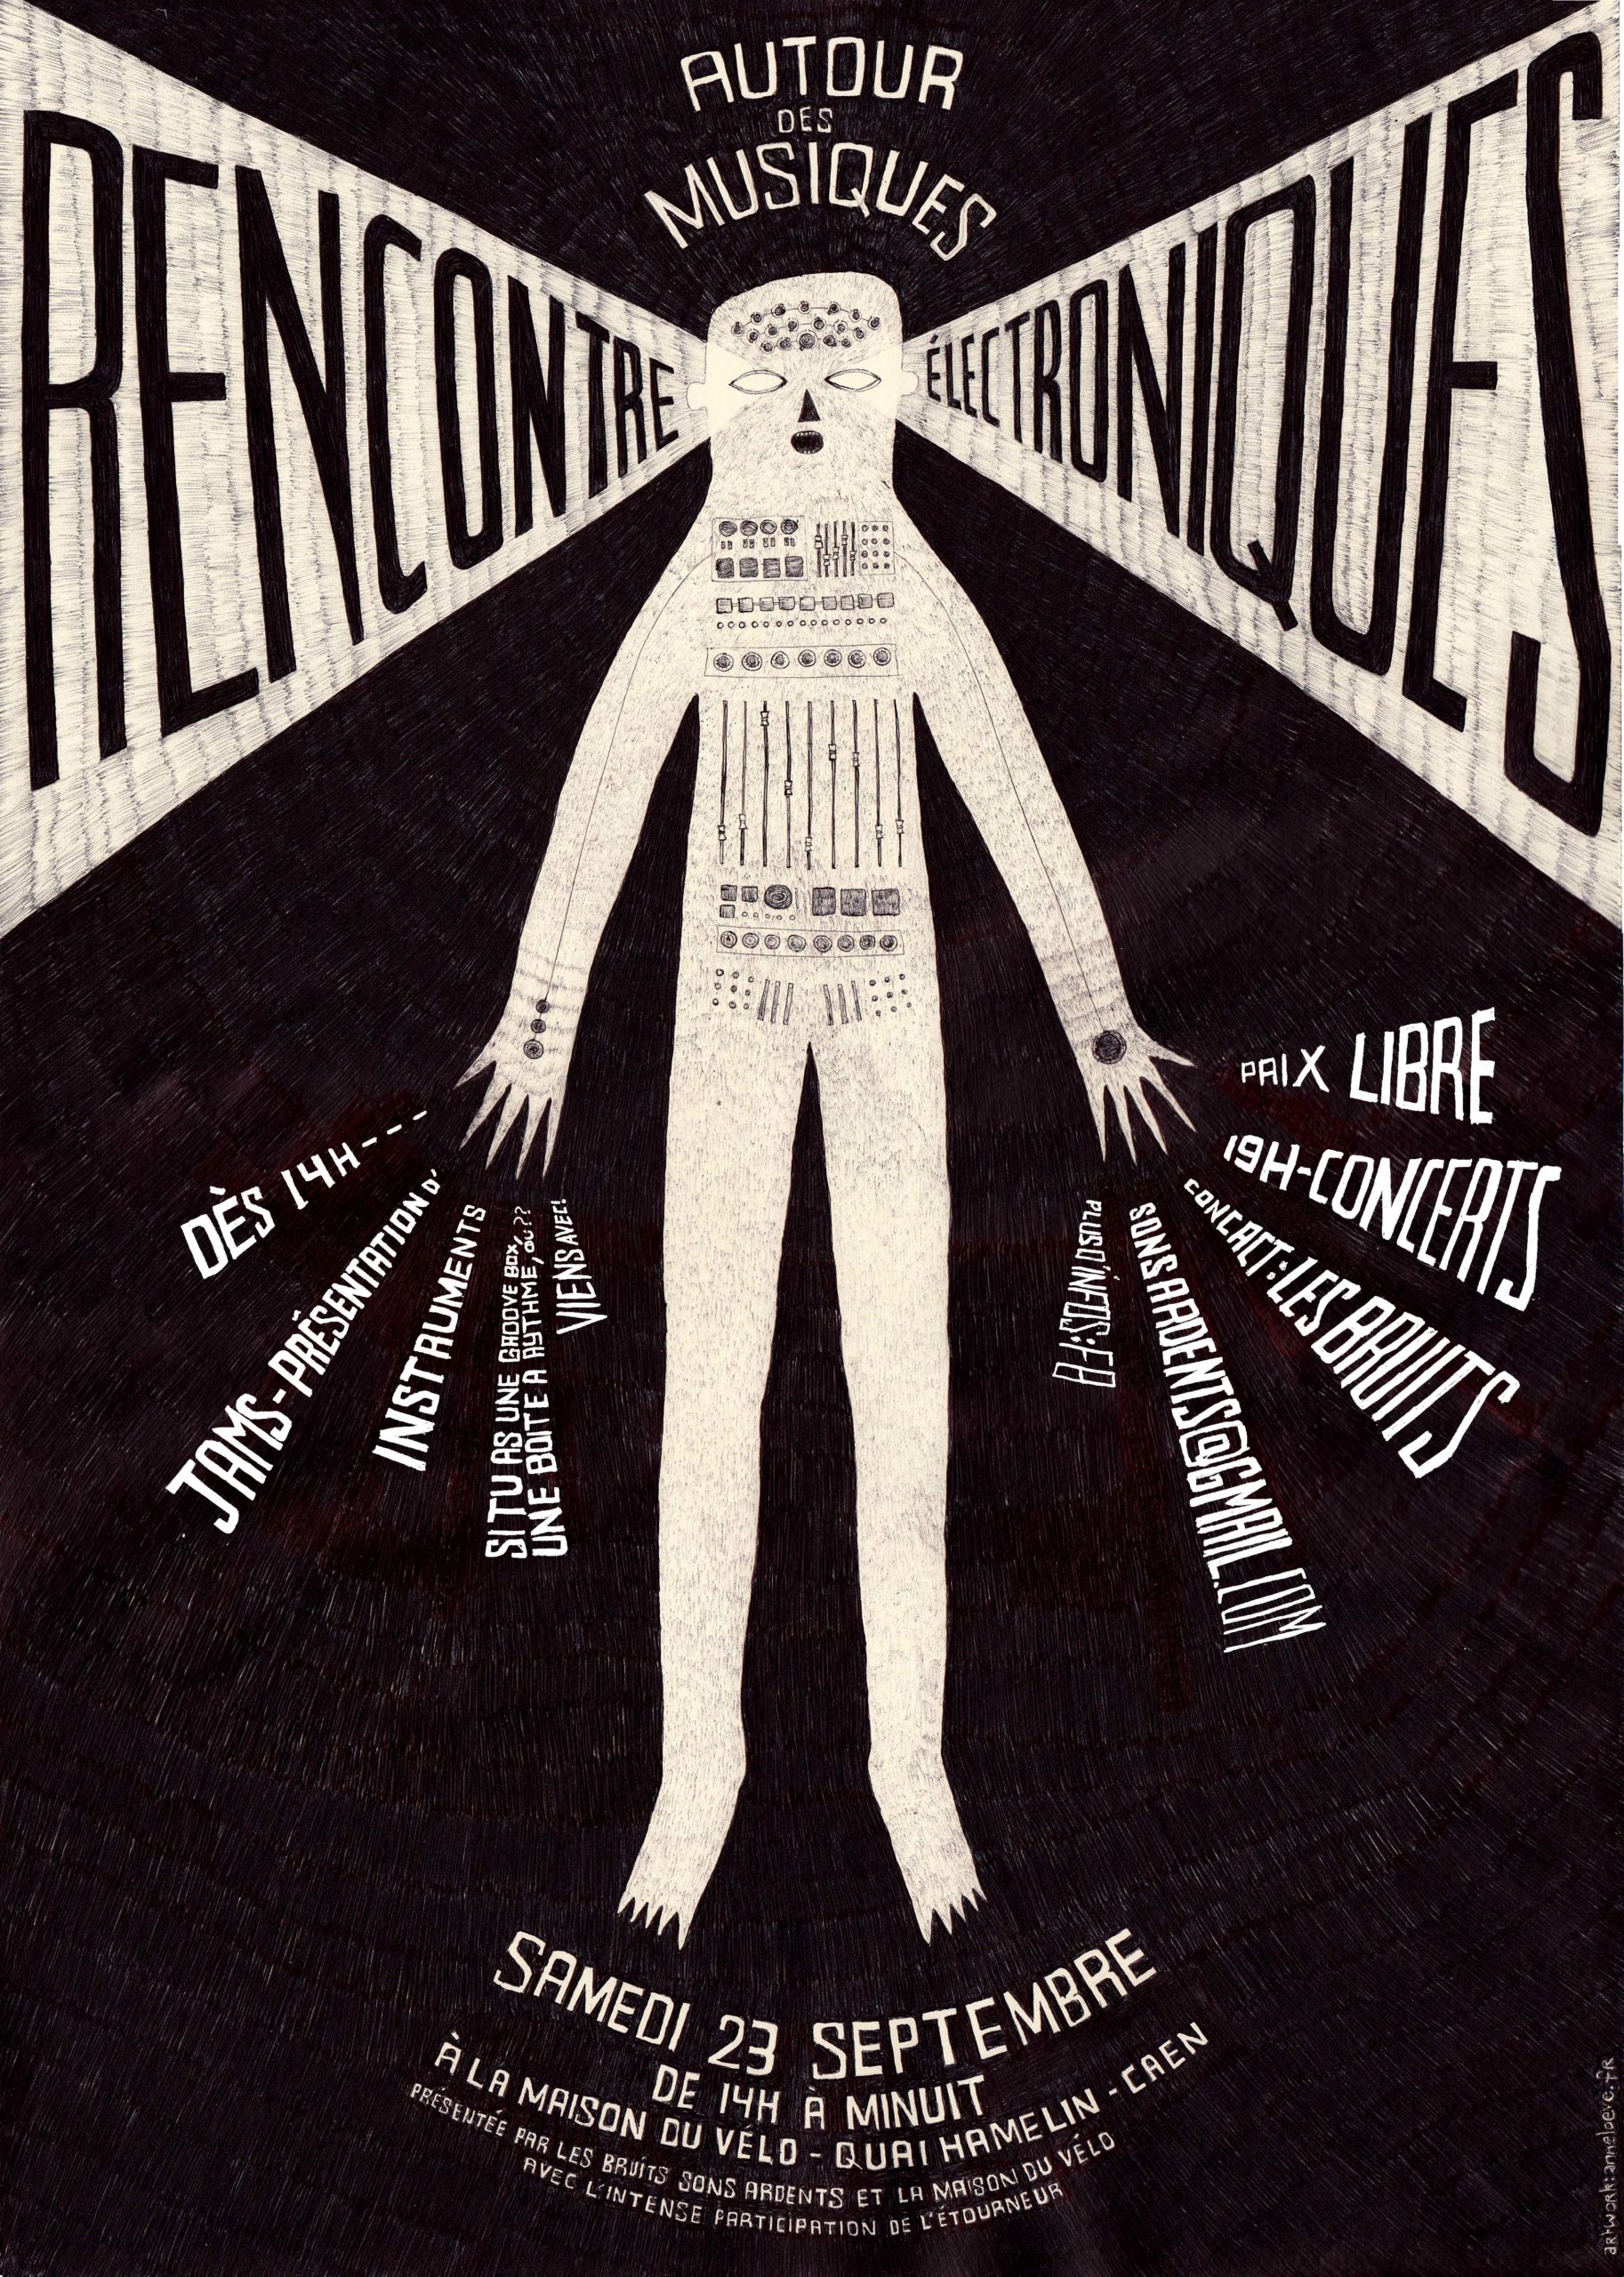 AUTOUR
DES
MUSIQUES
RENCONTRE
ÉLECTRONIQUES
DÈS 14H----
JAMS-PRÉSENTATION D'
INSTRUMENTS
SI TU AS UNE GROOVE BOX,
UNE BOITE A RYTHME, OU ??
VIENS AVEC!
PRIX LIBRE
19H-CONCERTS
CONCACT: LES BRUITS
SONSARDENTS@GMAIL.COM
PLUS D'INFOS: FB
SAMEDI 23 SEPTEMBRE
DE 14H À MINUIT
À LA MAISON DU VÉLO - QUAI HAMELIN - CAEN
PRÉSENTÉE PAR LES BRUITS SONS ARDENTS ET LA MAISON DU VÉLO
AVEC L'INTENSE PARTICIPATION DE L'ÉTOURNEUR
artwork:anneloeve.fR